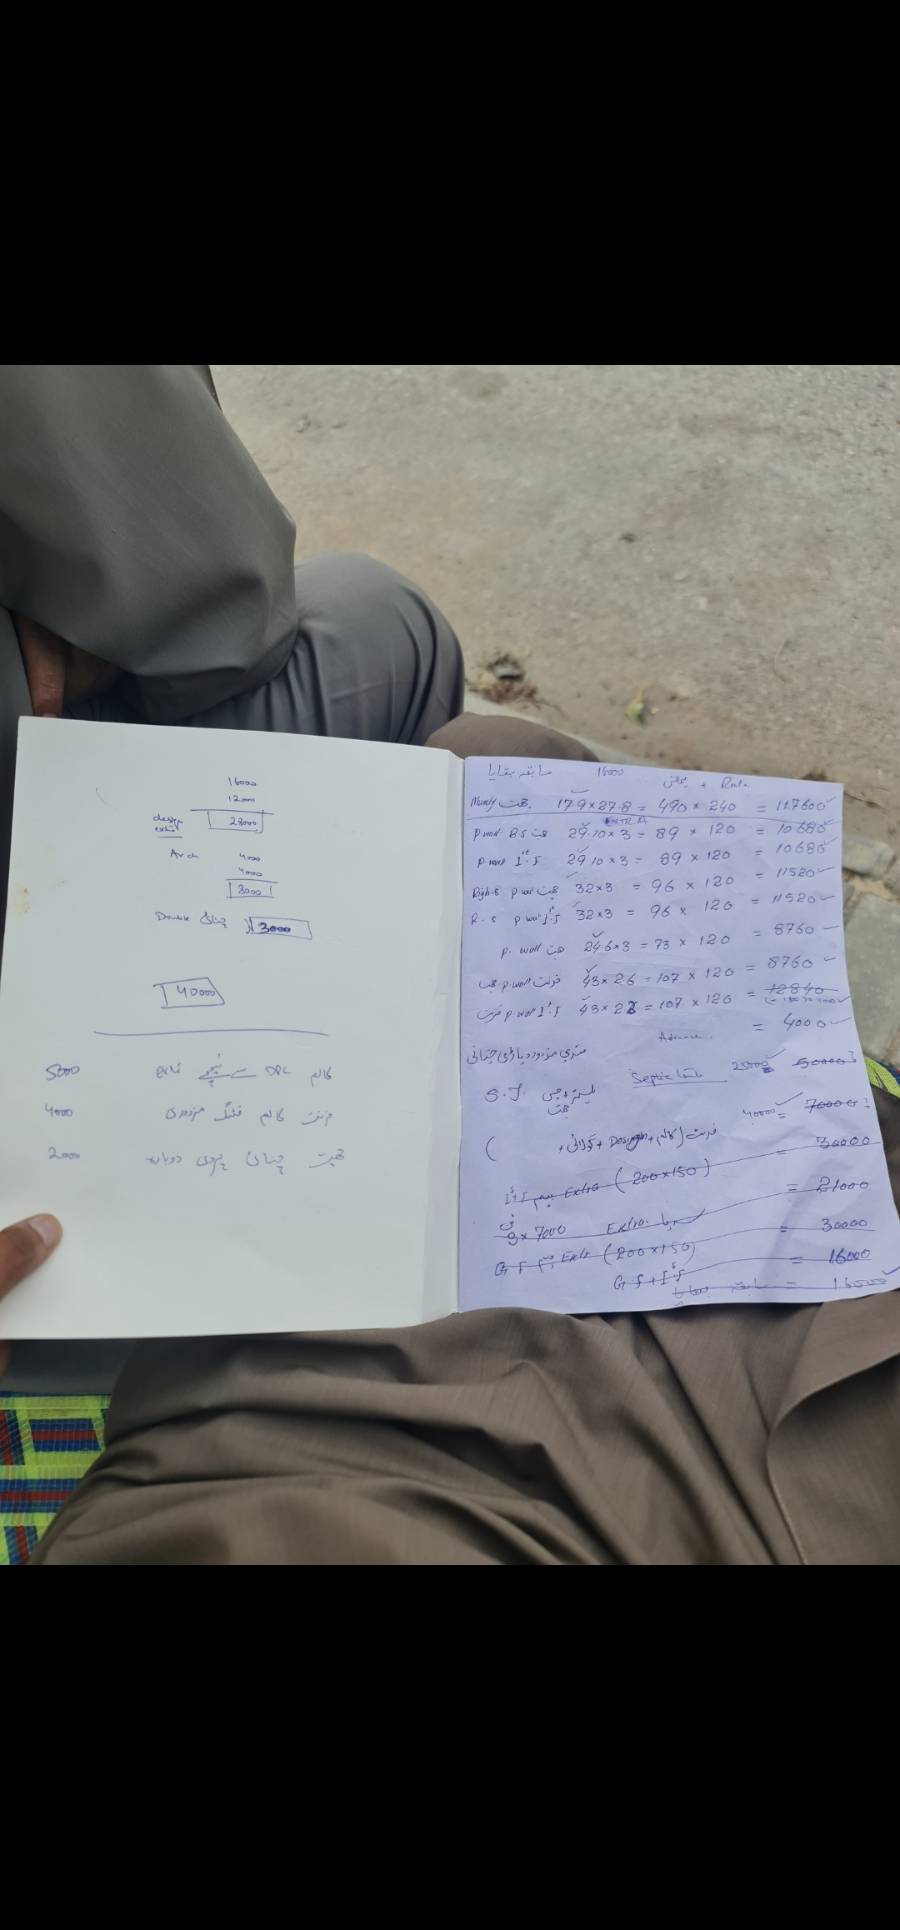 16000
12000
design
extra
28000
Arch 4000
4000
8000
Double چنائی 3000
40000
کالم DPC سے نیچے 5000
فرنٹ کالم فٹنگ مزدوری 4000
چھت چنائی پردی دوبارہ 2000
سابقہ بقایا 16000
+ Rate
چھت 17.9 × 27.8 = 490 × 240 = 117600
EXTRA
P wall B.S چھت 29.10 × 3 = 89 × 120 = 10680
P wall 1st.F 29.10 × 3 = 89 × 120 = 10680
Right.S P wall چھت 32×3 = 96 × 120 = 11520
R.S P wall 1.F 32×3 = 96 × 120 = 11520
P. wall چھت 24.6×3 = 73 × 120 = 8760
چھت P.wall فرنٹ 43×2.6 = 107 × 120 = 8760
فرنٹ P.wall 1st.F 43×2 = 107 × 120 = 12840
Advance = 4000
مستری مزدور دیہاڑی چنائی
Septic tank 25000 50000
S.F.
چھت
فرنٹ (کالم + Design + گولائی + ) 40000 = 70000
= 30000
1st F بیم Extra (200×150)
= 21000
3 × 7000 Extra.
= 30000
G F بیم Extr (200×150)
= 16000
G.F + 1st.F
سابقہ بقایا = 16000